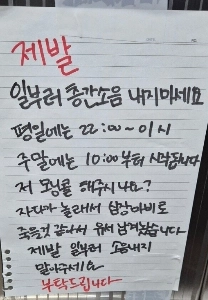 제발
일부러 층간소음 내지마세요
평일에는 22:00~01시
주말에는 10:00부터 시작됩니다
저 모닝콜 해주시나요?
자다가 놀래서 심장마비로
죽을것 같아서 유서 남겨놨습니다
제발 일부러 소음내지
말아주세요
부탁드립니다